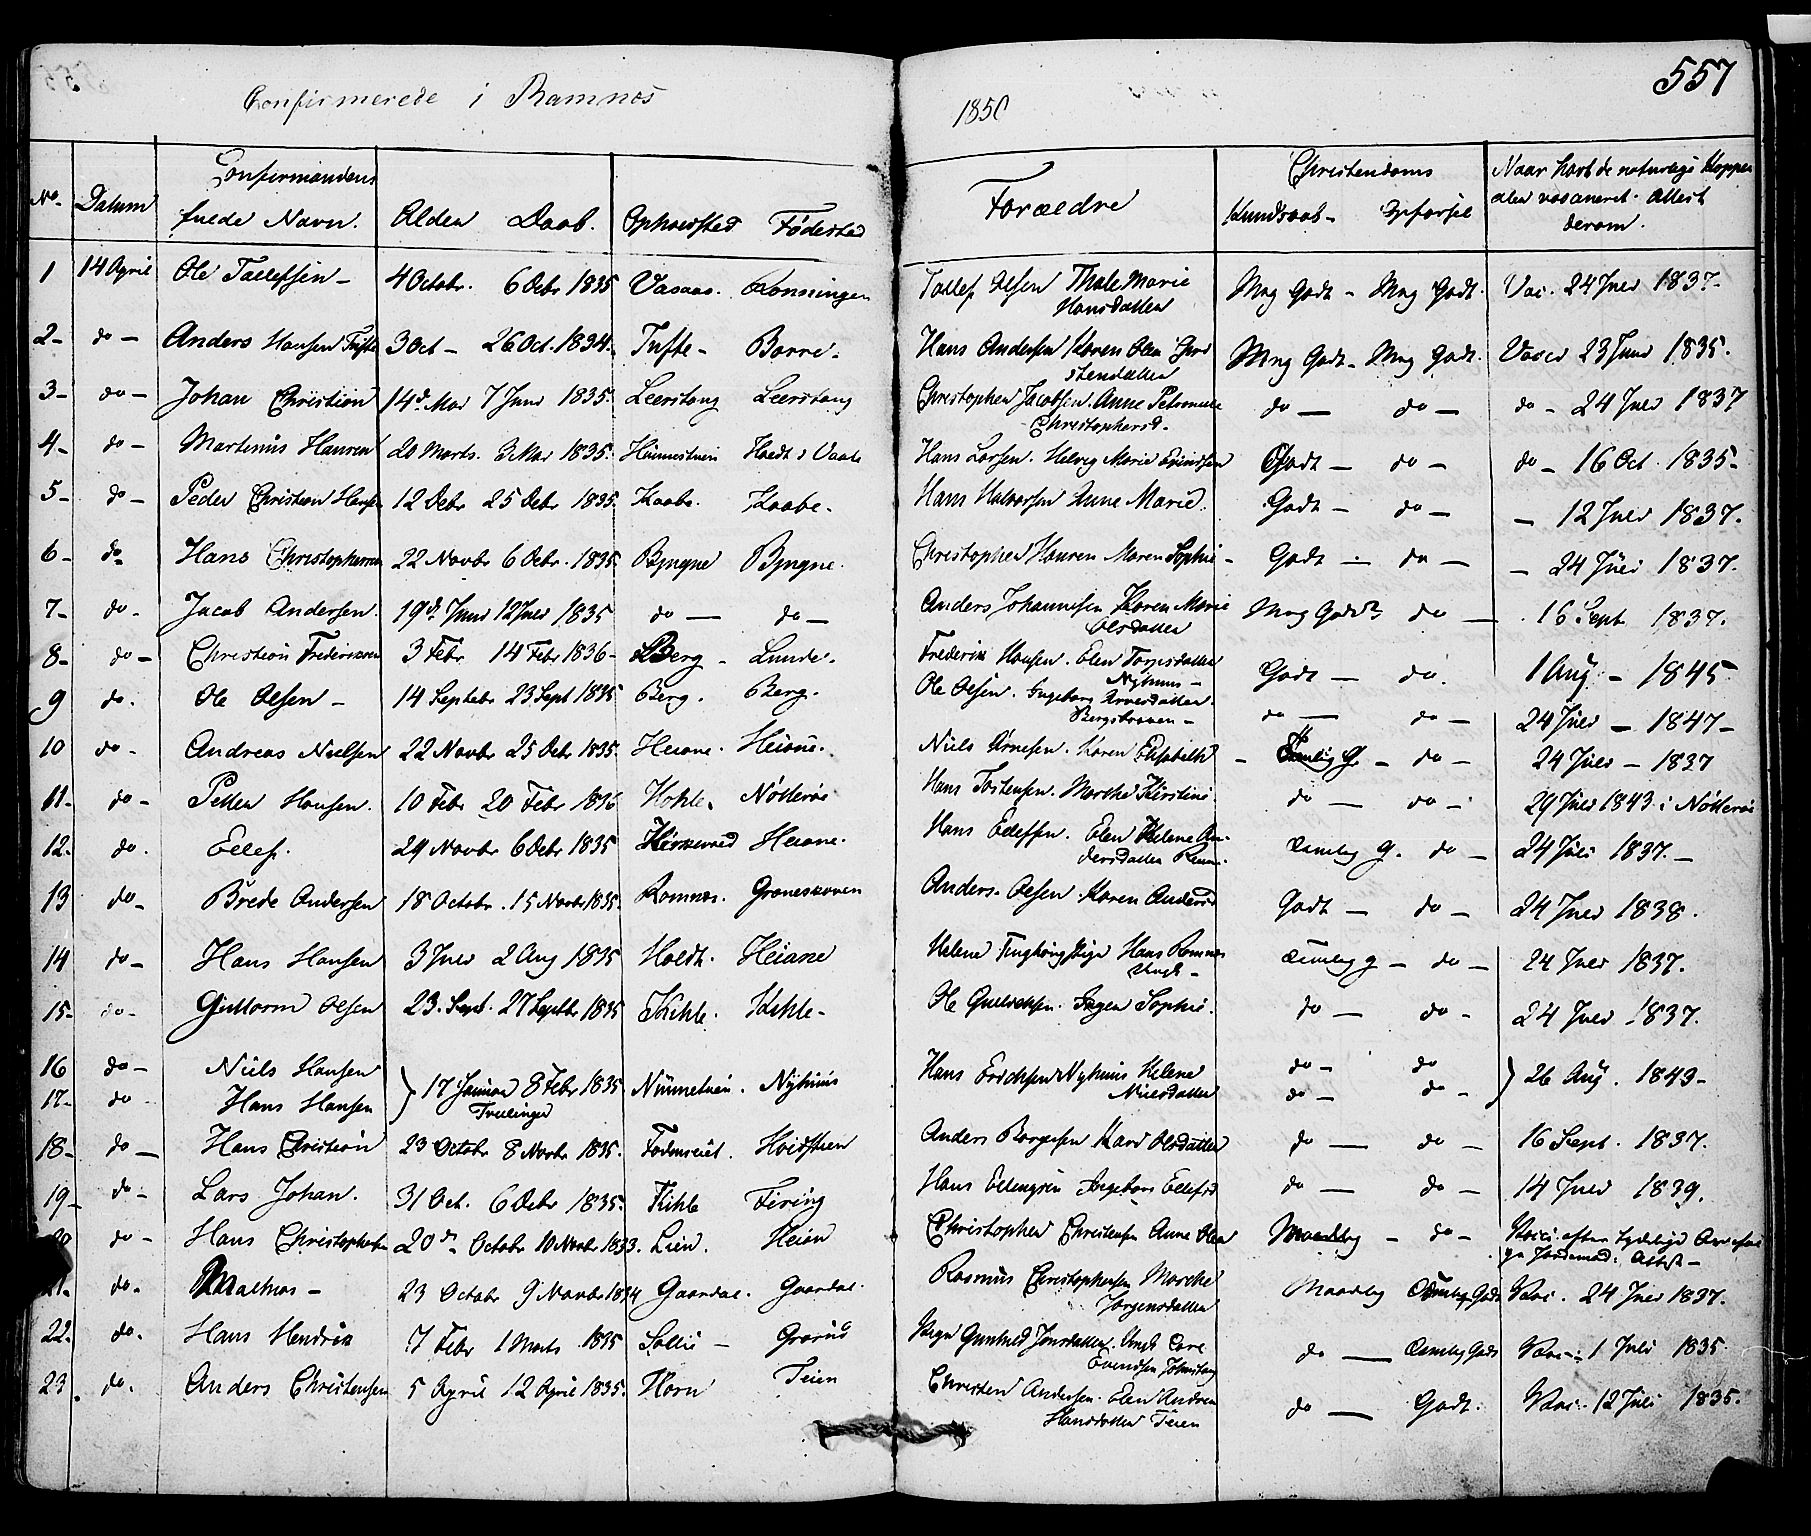 Confirmerede i Ramnæs
1850
557
No. Datum Confirmandens fulde Navn. Alder Daab. Opholdsted Fødested Forældre Christendoms Kundskab - Naar havt de naturlige Kopper eller vaccineret. Attest derom.
1 14 April Ole Tallefsen - 4 Octobr. 6 Decbr 1835 Vasaas. Rønningen Tallef Olsen Thale Marie Hansdatter Mug Godt - Mug Godt. Vac. 24 Juli 1837-
2- do - Anders Hansen Tufte 3 Oct - 26 Oct. 1834. Tufte - Borre. Hans Andersen Karen Olea Mug Godt - Mug Godt. 23 Juni 1835.
3- do - Johan Christian 14d. Mai 7 Juni 1835. Leerstang Leerstang Christopher Jacobsen. Anne Petronelle Christophersd. do - do - do - 24 Juli 1837
4- do - Martinus Hansen 20 Marts. 3 Mai 1835. Hans Larsen. Helvig Marie Godt - do - do - 16 Oct. 1835-
5- do - Peder Christian Hansen 12 Debr 25 Debr 1835. Kaabe. Kaabe. Hans Halvorsen Anne Marie. Godt - do - - 12 Juli 1837.
6- do- Hans Christophersen 22 Novbr 6 Decbr. 1835 Bjugne Bjugne. Christopher Hansen Maren Sophie - Godt - do - - 24 Juli 1837.
7- do - Jacob Andersen. 19d. Juni 12 Juli 1835 do - do - Anders Johannesen Karen Marie Olsdatter Mug Godt do - . 16 Sept 1837.
8- do - Christian Fredriksen 3 Febr 14 Febr 1836- Berg - Lunde. Frederik Hansen. Elen Nyhuus - Godt - do. 1 Aug - 1845
9 do. Ole Olsen - 14 Septebr 23 Sept 1835 Berg. Berg. Ole Olsen. Ingeborg do - do - 24 Juli - 1847-
10 do - Andreas Nielsen 22 Novbr 25 Debr 1835. Heiane. Heiane. Niels Arnesen. Karen Elisabeth - Temlig G. - do - 24 Juli - 1837
11- do - Petter Hansen. 10 Febr 20 Febr 1836 Nøtterøe Hans Torstensen. Marthe Kirstine. do - do - 29 Juli 1843 i Nøtterøe
12- do. Ellef. 29 Novbr 6 Debr 1835 Heiane. Hans Ellefsen. Elen Helene Andersdatter Temlig G. do - 24 Juli 1837. -
13 do - Brede Andersen 18 Octobr. 15 Novbr 1835. Ramnæs. Graneskoven Anders Olsen. Karen Andersd Godt - do - 24 Juli 1838.
14 do - Hans Hansen 3 Juli 2 Aug 1835 Holdt. Heiane Helene Pige Hans Ramnæs Ungk - Temlig g - do - 24 Juli 1837.
15- do - Guttorm Olsen 23. Sept. 27 Septbr 1835 Kihle. Kihle - Ole Inger Sophie. do - do - 24 Juli 1837.
16 do - Niels Hansen do - do
17- do - Hans Hansen } 17 Januar 8 Febr 1835 Tvillinger Nyhuus Hans Erichsen Nyhuus Helene Nielsdatter do - do - } 26 Aug. 1843-
18- do - Hans Christian 23 Octobr 8 Novbr 1835. Anders Borgersen Kari Olsdatter do - do - 16 Sept. 1837.
19- do - Lars Johan. 31 Oct. 6 Debr 1835. Kihle Firing Hans Ingeborg Ellefsd do - do - 14 Juli 1839.
20 do - Hans Christophersen 20d. Octobr 10 Novbr 1833. Lien. Heian Christopher Christensen Anne Olea Maadelig - do - Vacci. efter tydelige Attest -
21- do. Mathias - 23 Octobr 9 Novbr 1834 Gaardal. Gaardal. Rasmus Christophersen Marthe Jørgensdatter Maadelig Temlig Godt Vac. 24 Juli 1837.
22- do. Hans Hendrik 7 Febr 1 Marts 1835 Sollie - Pige Gunhild Jonsdatter. Ungk do - Temlig Godt Vac. - 1 Juli 1835.
23. do. Anders Christensen 5 April 12 April 1835. Horn Teien Christen Andersen. Elen Andrea Hansdatter Teien do - Godt. Vac. - 12 Juli 1835.